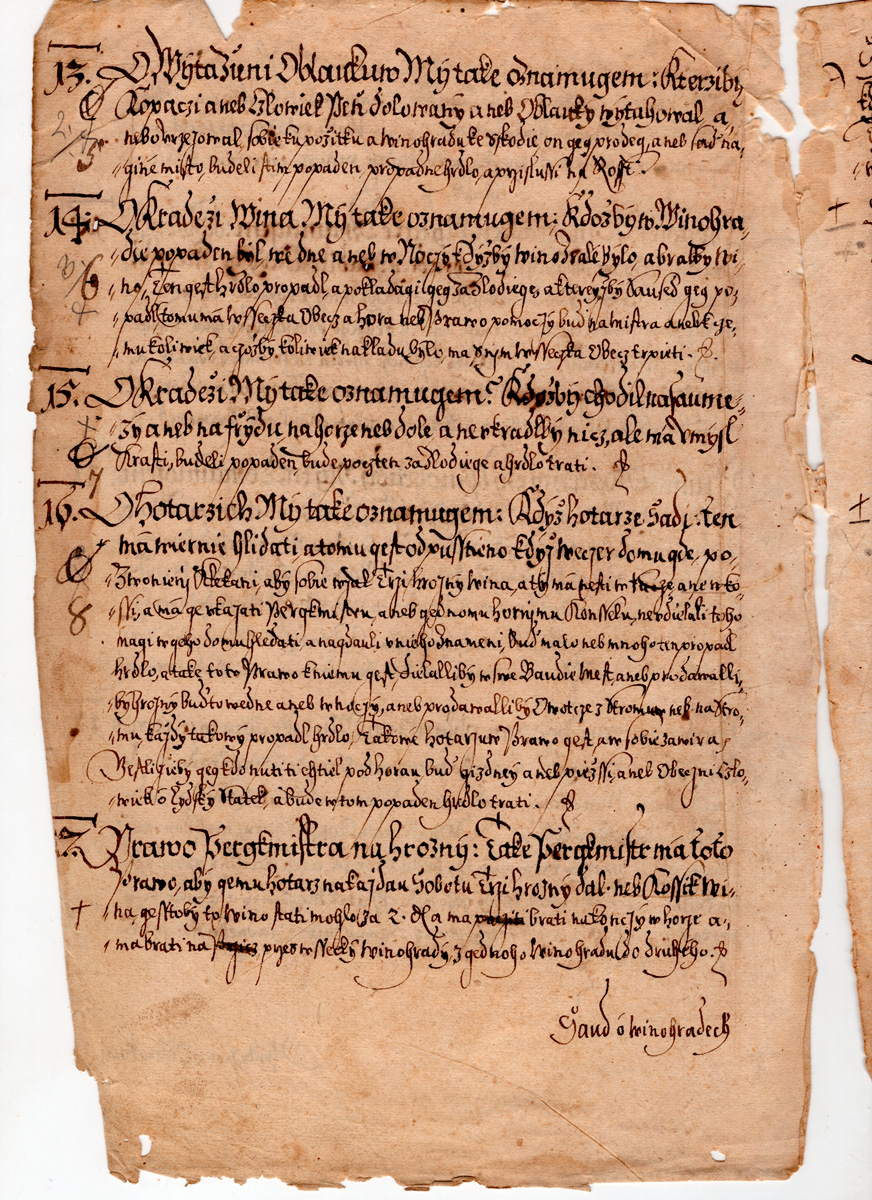 13. O Wytaženi Oblaukuw My take oznamugem: Kterziby
Kopaczi aneb Człowiek Peň dolowany aneb Oblauky wytahowal a,
nebo sobie ku požitku a winohradu ke sskodie on geg prodeg, aneb sad na,
gine misto, budeli s tim popaden, propadne hrdlo, a przislussi na Rosst.
14. O Kradeži Wina My take oznamugem: Kdožby w Winohra,
die popaden byl we dne aneb w Noczy kdyžby wino zrale bylo, a bralby wi,
no, Ten gest hrdlo propadl, a pokladagi geg za Zlodiege, a ktereyžby Saused geg po,
padl, tomu ma wsseczka Obecz a hora neb Prawo pomoczy buď na mistra aneb k cze,
mu koliwiek, a czožby koliwiek nakladu bylo, ma s nym wsseczka Obecz trpieti.
15. O Kradeži My take oznamugem: Kdyžby chodil na saume,
zy aneb na frydu, na horze neb dole a newkradlby nicz, ale ma vmysl
Krasti, budeli popaden, bude pocžten za Zlodiege a hrdlo trati.
16. O hotarzich My take oznamugem: Kdyz hotarze Sadj: ten
ma wiernie hlidati a tomu gest odpussteno kdyz weczer domu gde, po,
Zwonieny Klekani, aby sobie wzal Trzi hrozny wina, a ty ma nesti w ruce a ne w ko,
ssi, a ma ge vkazati Pergkmistru, aneb gednomu hornymu Konsselu, nevdielali toho
magi w geho domu hledati a nagdauli v nieho znameni, buď malo neb mnoho ten propadl
hrdlo, a take toto Prawo k niemu gest, dielalliby w swe Baudie Mest, aneb prodawalli,
by hrozny buďto we dne aneb w noczy, aneb prodawalliby Owotcze z Stromuw neb na Stro,
mu, každy takowy propadl hrdlo, Takowe hotarzuw Prawo gest, a w sobie zawira,
Gestližeby geg kdo nutiti chtiel pod horau, buď gizdney aneb piessi, aneb Obeczni Czlo,
wiek o Lydsky Statek, a bude w tom popaden hrdlo trati.
17. Prawo Pergkmistra na hrozny: Take Pergkmistr ma toto
Prawo, aby gemu hotarz na každau Sobotu Trzi hrozny dal neb Kossik wi,
na, gesstoby to wino stati mohlo za 2. ma brati na konczy w horze a,
ma brati na przes wsseczky winohrady, z gednoho winohradu do druheho.
Saud o winohradech